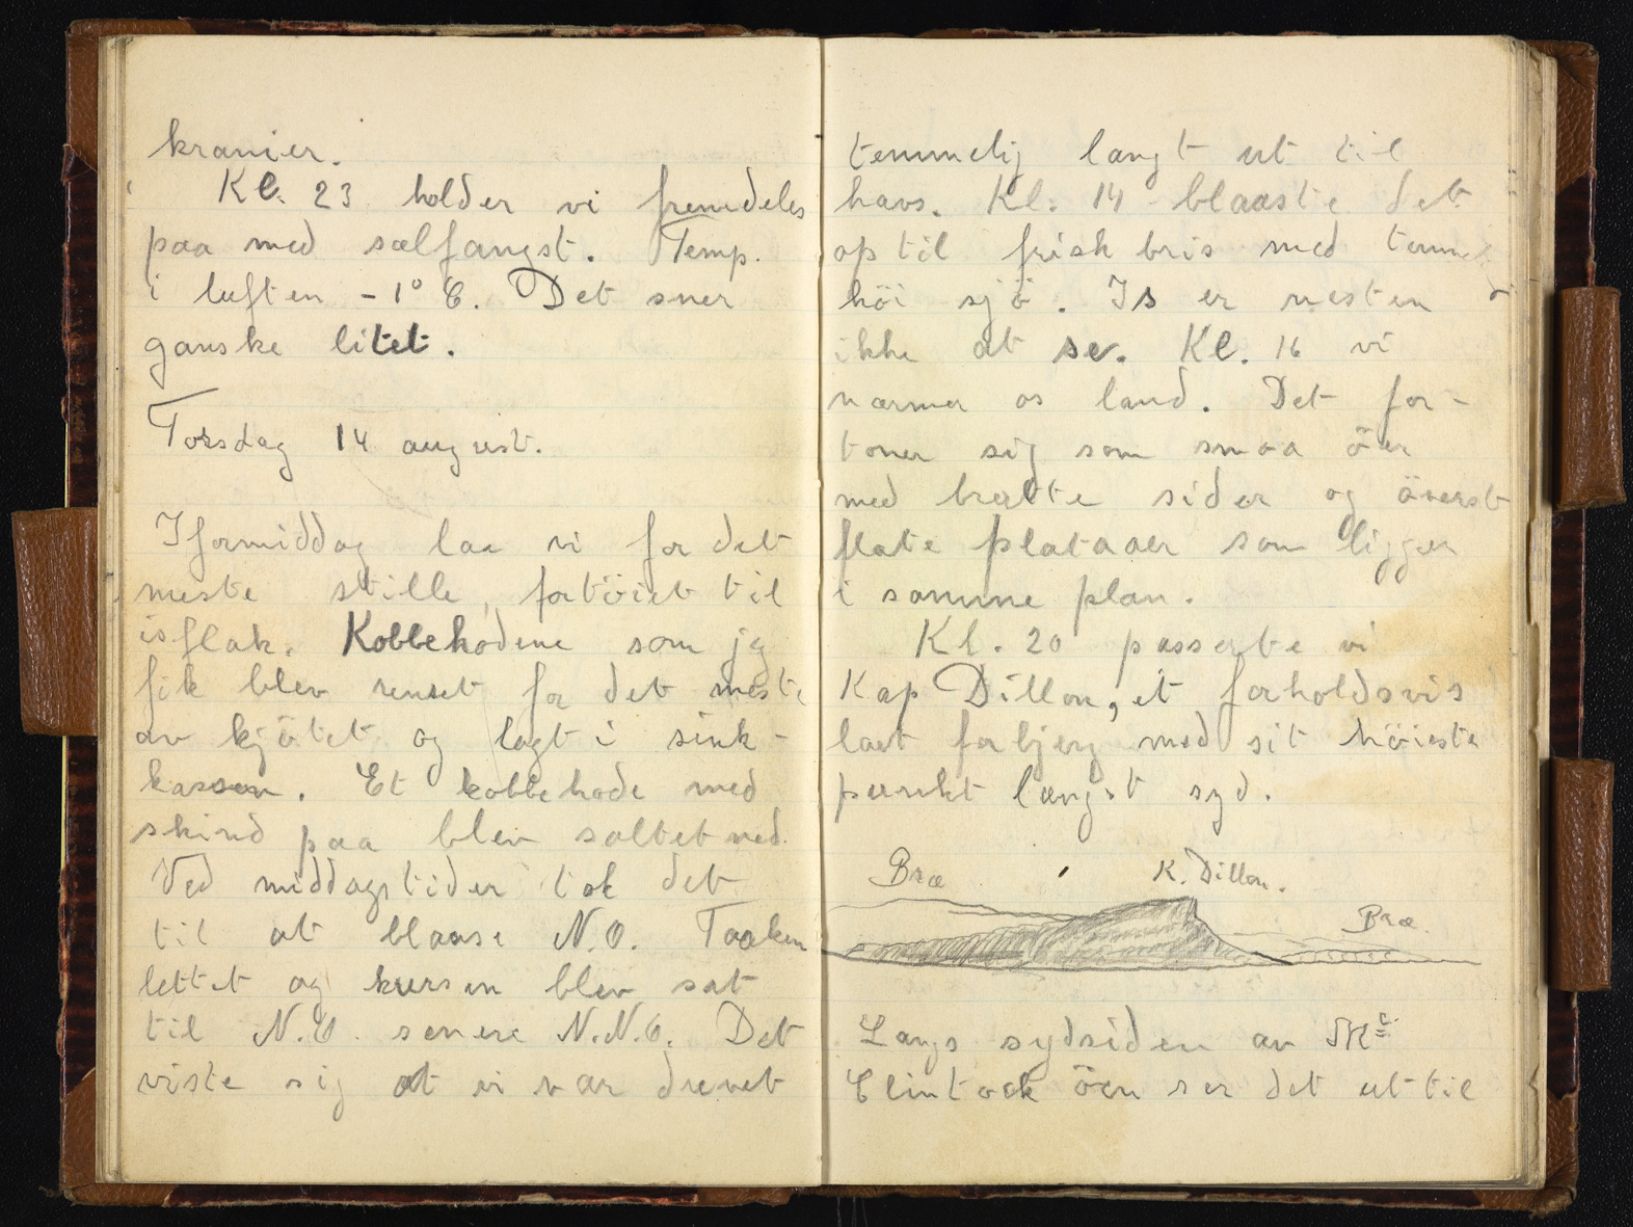 kranier.
Kl. 23 holder vi fremdeles
paa med sælfangst. Temp.
i luften -1° C. Det sner
ganske litet.
Torsdag 14 august.
Iformiddag laa vi for det
meste stille, fortöiet til
isflak. Kobbehodene som jeg
fik blev renset for det meste
av kjötet og lagt i sink-
kassen. Et kobbehode med
skind paa blev saltet ned.
Ved middagstider tok det
til at blaase N.O. Taaken
lettet og kursen blev sat
til N.O. senere N.N.O. Det
viste sig at vi var drevet
temmelig langt ut til
havs. Kl. 14 blaaste det
op til frisk bris med
höi sjö. Is er nesten
ikke at se. Kl. 16 vi
nærmer os land. Det for-
toner sig som smaa öer
med bratte sider og överst
flate plataaer som ligger
i samme plan.
Kl. 20 passerte vi
Kap Dillon, et forholdsvis
lavt forbjerg med sit höieste
punkt længst syd.
Bræ K. Dillon.
Bræ.
Langs sydsiden av Mc
Clintock öen ser det ut til